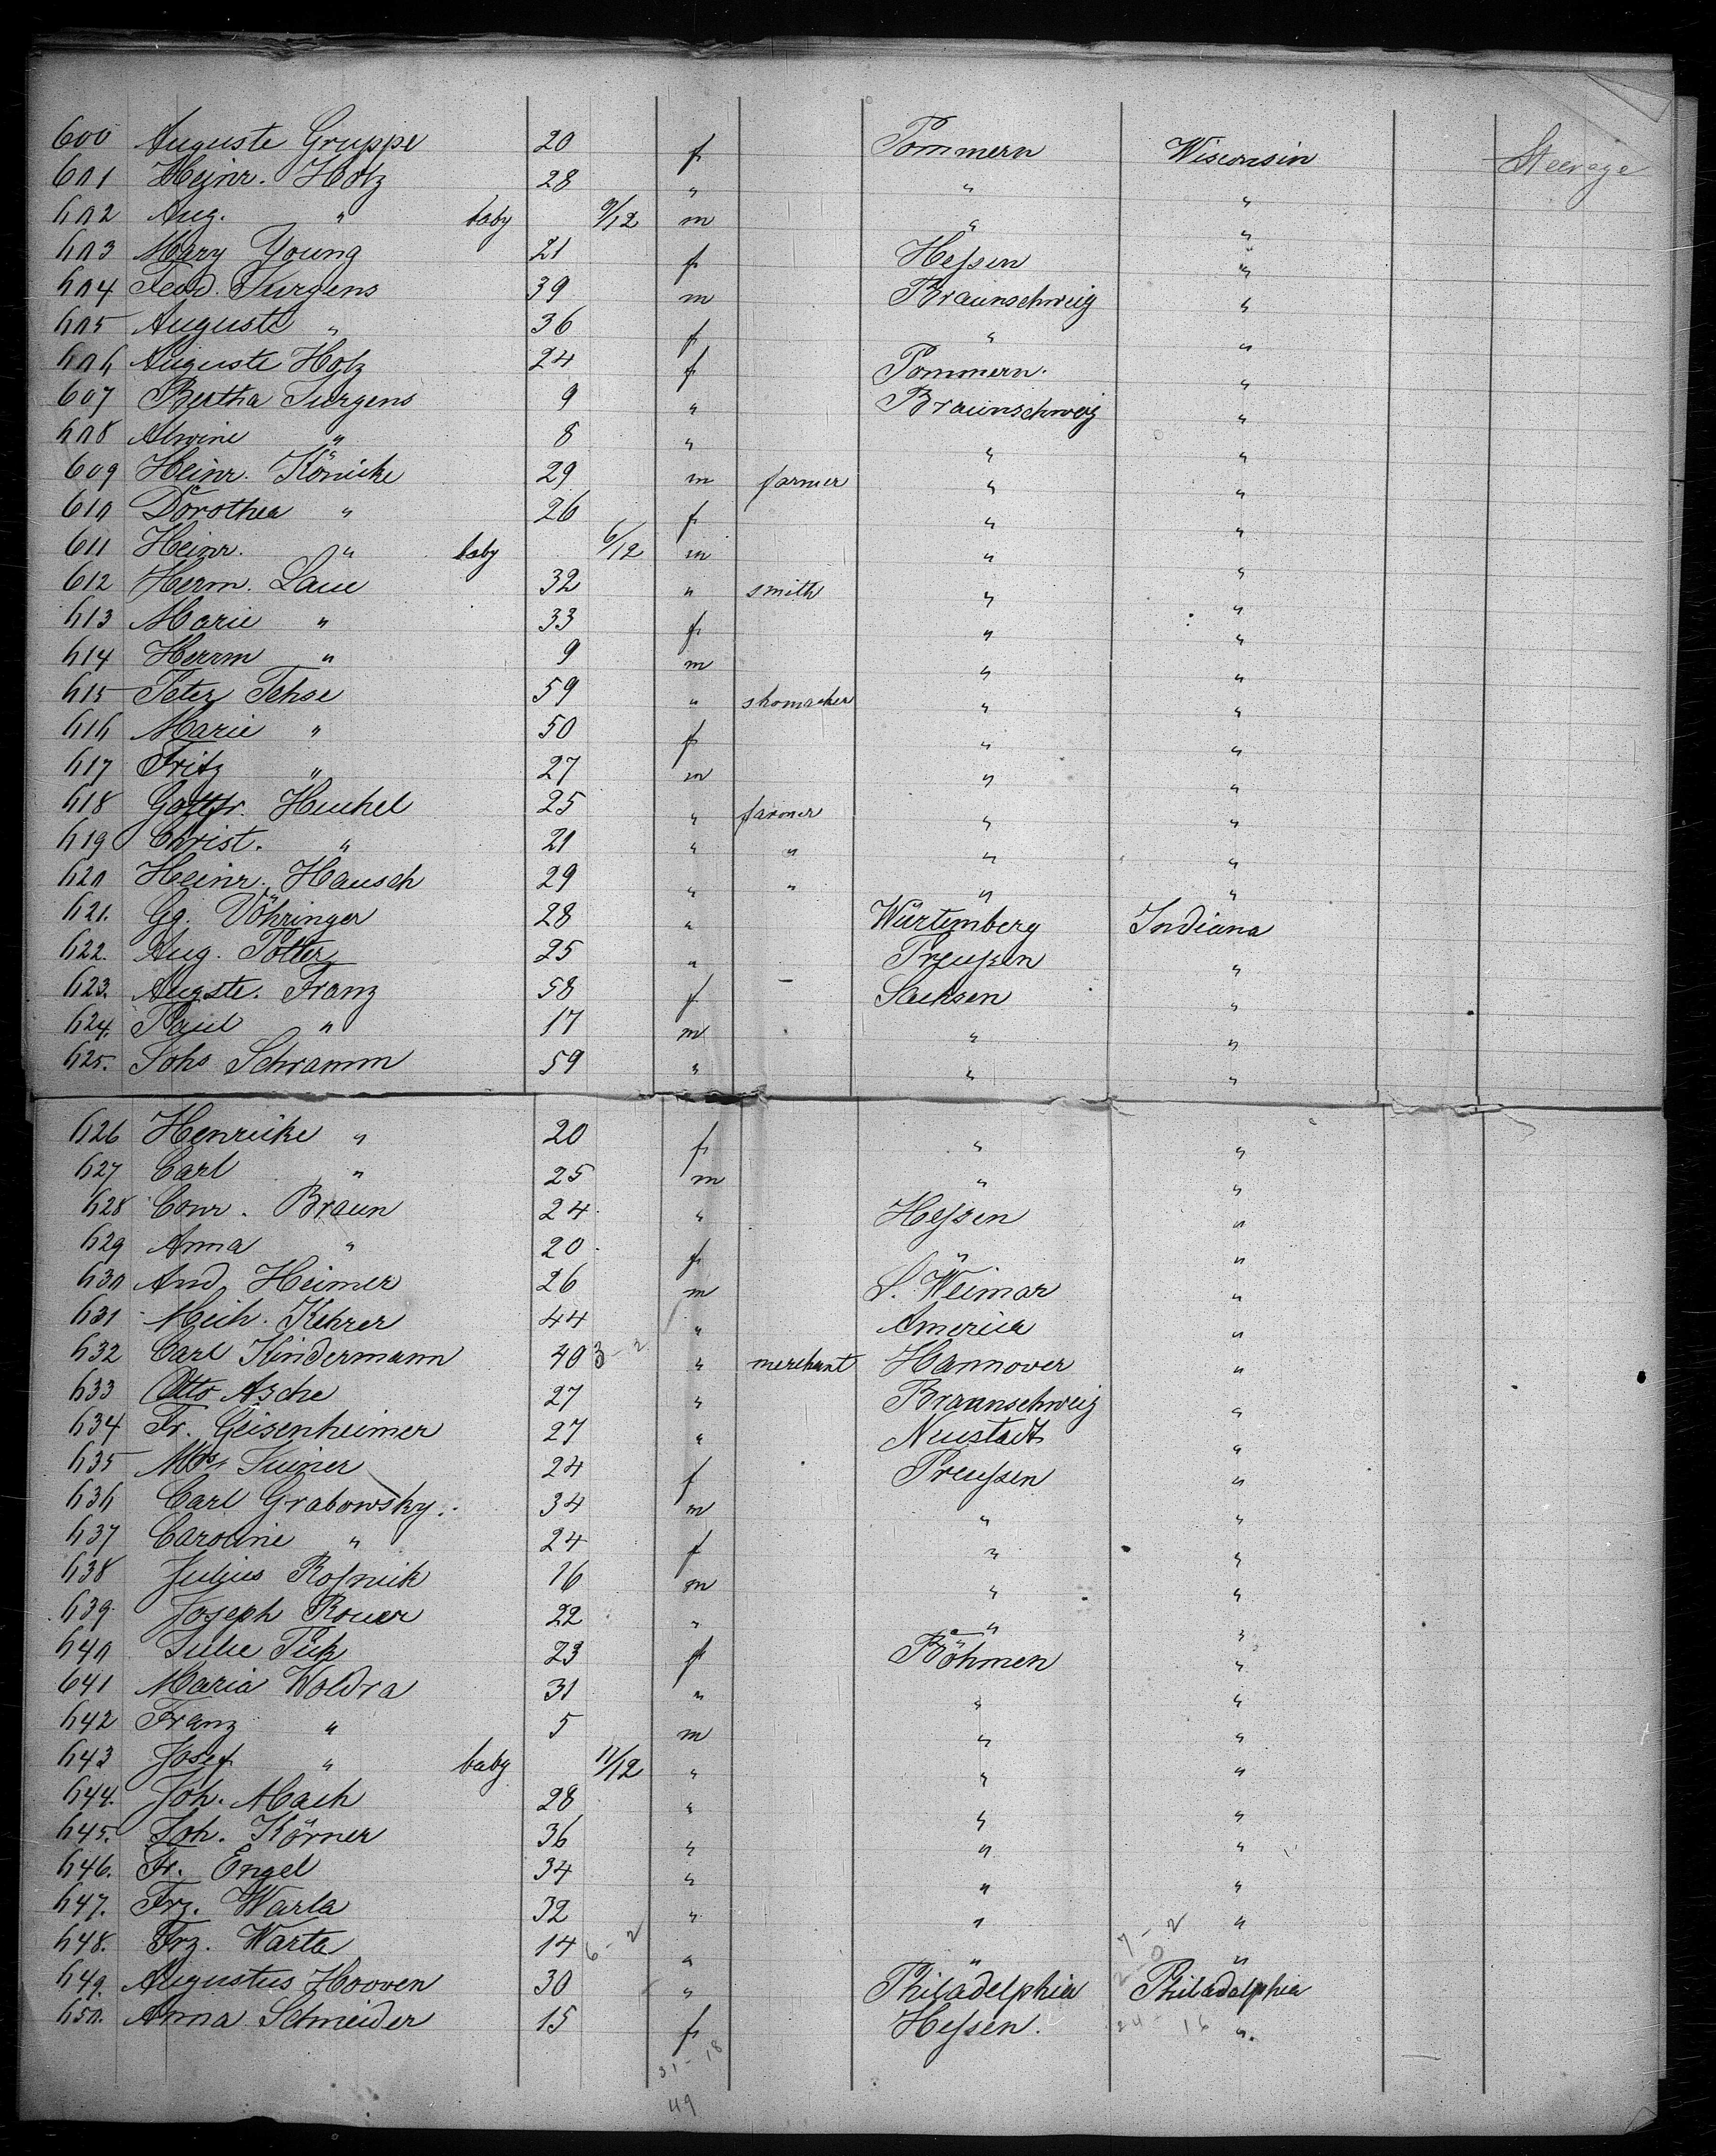 600 Auguste Gruppe 20 f Pommern Wisconsin Steerage
601 Heinr. Holz 28 " " "
602 Aug. " baby 9/12 m " "
603 Mary Young 21 f Heſsen "
604 Ferd. Jurgens 39 m Braunschweig "
605 Auguste " 36 f " "
606 Auguste Holz 24 f Pommern. "
607 Bertha Jurgens 9 " Braunschweig "
608 Alwine " 8 " " "
609 Heinr. Könicke 29 m farmer " "
610 Dorothea " 26 f " "
611 Heinr. " baby 6/12 m " "
612 Herm. Laue 32 " smith " "
613 Marie " 33 f " "
614 Herrm " 9 m " "
615 Peter Tehse 59 " shomacker " "
616 Marie " 50 f " "
617 Fritz " 27 m " "
618 Gottfr. Heuckel 25 " farmer " "
619 Christ. " 21 " " " "
620 Heinr. Hausch 29 " " " "
621. Gg. Vöhringer 28 " Würtemberg Indiana
622. Aug. Potter 25 " Preuſsen "
623. Augste. Franz 58 f - Sachsen "
624. Paul " 17 m " "
625. Johs Schramm 59 " " "
626 Henricke " 20 f " "
627 Carl " 25 m " "
628 Conr. Braun 24 " Heſsen "
629 Anna " 20 f " "
630 And. Heimer 26 m S. Weimar "
631 Mich. Kehrer 44 " America "
632 Carl Kindermann 40 3 - 2 " merchant Hannover "
633 Otto Asche 27 " Braunschweig "
634 Fr. Geisenheimer 27 " Neustadt "
635 Mrs. 24 f Preuſsen "
636 Carl Grabowsky. 34 m " "
637 Caroline " 24 f " "
638 Julius Roſsnick 16 m " "
639 Joseph Rouer 22 " " "
640 Julie 23 f Böhmen "
641 Maria Woldra 31 " " "
642 Franz " 5 m " "
643 Josef " baby 11/12 " " "
644. Joh. Mach 28 " " "
645. Joh. Körner 36 " " "
646. Fr. Engel 34 " " "
647. Frz. Warta 32 " " "
648. Frz. Warta 14 6 - 2 " " 7 - 2 "
649. Augustus Hooven 30 " Philadelphia Philadelphia
650. Anna Schneider 15 f Heſsen. 24 - 16 ".
31 - 18
49